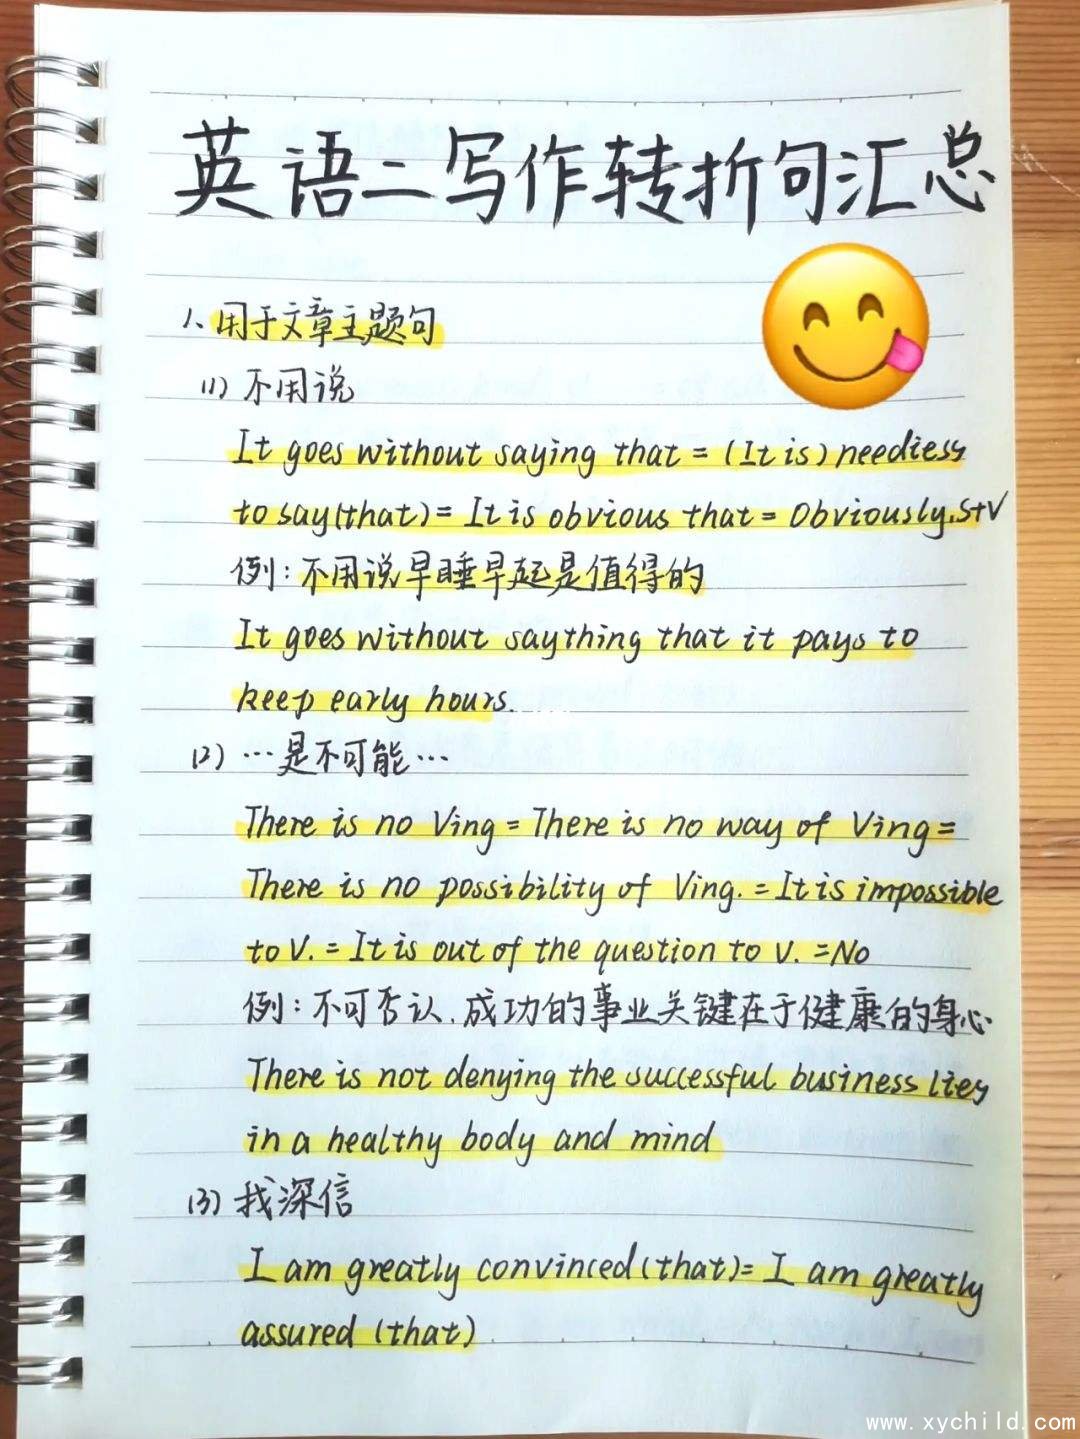 英语二写作转折句汇总
1、用于文章主题句
(1) 不用说
It goes without saying that = (It is) needless
to say (that) = It is obvious that = Obviously, S+V
例：不用说早睡早起是值得的
It goes without saything that it pays to
keep early hours.
(2) …是不可能…
There is no Ving = There is no way of Ving =
There is no possibility of Ving. = It is impossible
to V. = It is out of the question to V. = No
例：不可否认，成功的事业关键在于健康的身心
There is not denying the successful business lies
in a healthy body and mind
(3) 我深信
I am greatly convinced (that) = I am greatly
assured (that)
www.xychild.com